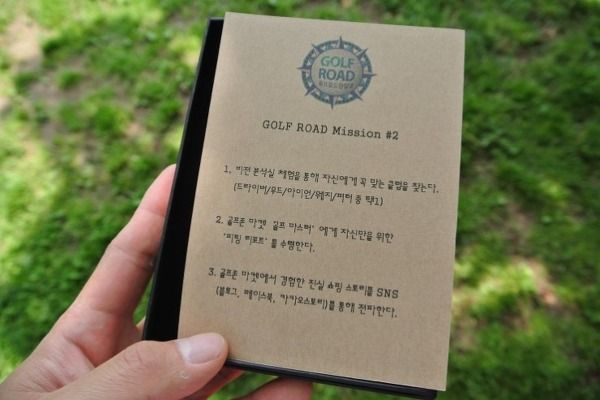 GOLF
ROAD
GOLF ROAD Mission #2
1. 비전 분석실 체험을 통해 자신에게 꼭 맞는 클럽을 찾는다.
(드라이버/우드/아이언/웨지/퍼터 중 택1)
2. 골프존 마켓 '골프 마스터' 에게 자신만을 위한
'피팅 리포트' 를 수령한다.
3. 골프존 마켓에서 경험한 진실 쇼핑 스토리를 SNS
(블로그, 페이스북, 카카오스토리)를 통해 전파한다.